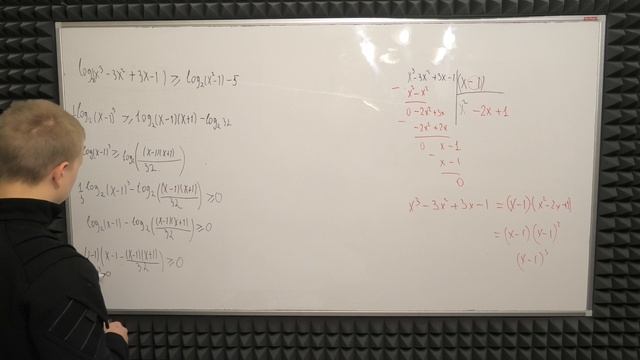 log₂(x³ - 3x² + 3x - 1) ≥ log₂(x² - 1) - 5
log₂(x-1)³ ≥ log₂(x-1)(x+1) - log₂32
log(x-1)³ ≥ log₂((x-1)(x+1)/32)
1/3 log₂(x-1)³ - log₂((x-1)(x+1)/32) ≥ 0
log₂(x-1) - log₂((x-1)(x+1)/32) ≥ 0
(x-1 - (x-1)(x+1)/32) ≥ 0
x³ - 3x² + 3x - 1 | (x-1)
- x³ - x² | x² - 2x + 1
0 - 2x² + 3x
- -2x² + 2x
0 x - 1
- x - 1
0
x³ - 3x² + 3x - 1 = (x-1)(x² - 2x + 1)
= (x-1)(x-1)²
(x-1)³